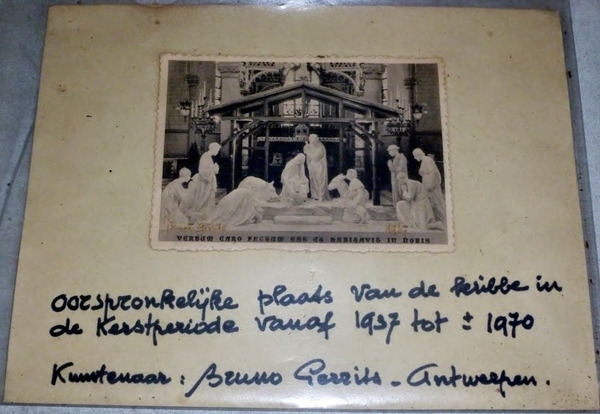 VERBUM CARO FACTUM EST ET HABITAVIT IN NOBIS
oorspronkelijke plaats van de kribbe in
de Kerstperiode vanaf 1937 tot ± 1970
Kunstenaar : Bruno Gerrits - Antwerpen.